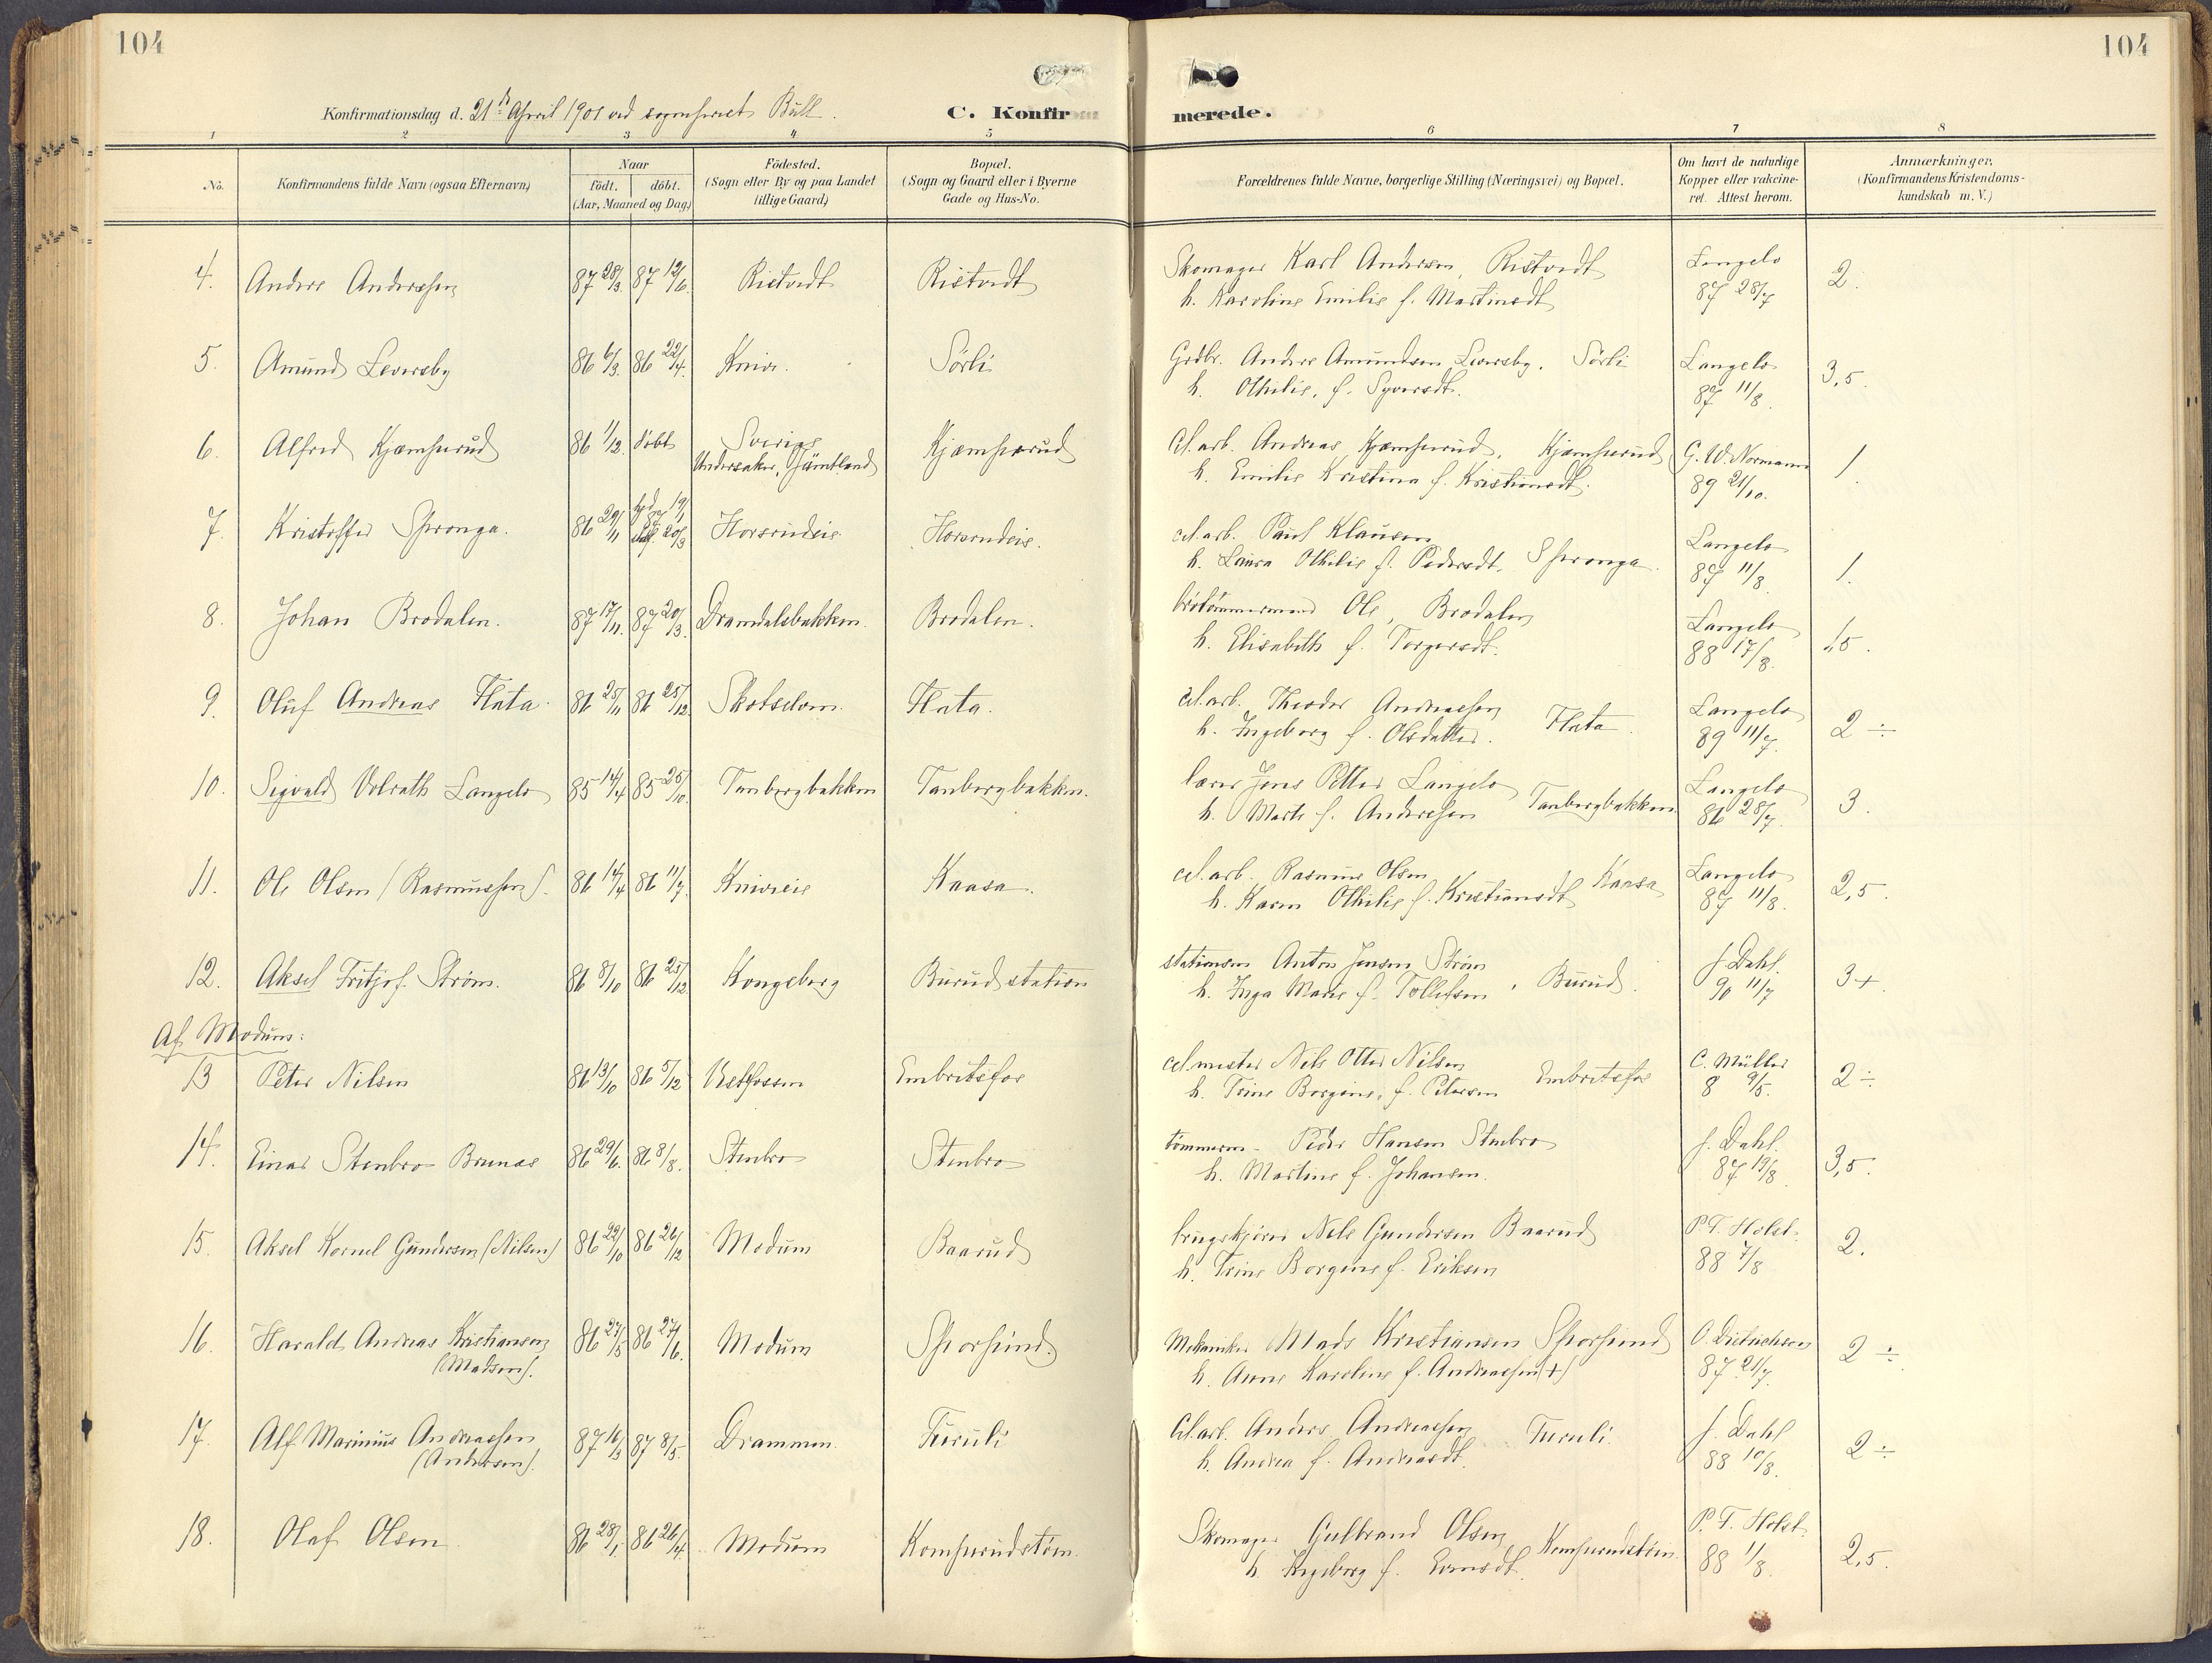 104
104
Konfirmationsdag d. 21de April 1901 ved sognepræst Bull.
C. Konfirmerede.
1 2 3 4 5 6 7 8
No.
Konfirmandens fulde Navn (ogsaa Efternavn)
Naar
födt. döbt.
(Aar, Maaned og Dag)
Födested.
(Sogn eller By og paa Landet
tillige Gaard)
Bopæl.
(Sogn og Gaard eller i Byerne
Gade og Hus-No.
Forældrenes fulde Navne, borgerlige Stilling (Næringsvei) og Bopæl.
Om havt de naturlige
Kopper eller vakcine-
ret. Attest herom.
Anmærkninger.
(Konfirmandens Kristendoms-
kundskab m. V.)
4. Anders Anderssen 87 28/3. 87 12/6. Ristvedt Ristvedt Skomager Karl Andersen, Ristvedt Langelo 2.
h. Karoline Emilie f. Martinsdt 87 28/7
5. Amund Leversby 86 6/3. 86 22/4. Knive. Sörli Grdbr. Anders Amundsen Leversby. Sörli Langelo 3,5.
h. Othilie, f. Syversdt. 87 11/8.
6. Alfred Kjæmperud 86 1/12. döbt Sverige Kjæmperud Cel. arb. Andreas Kjæmperud, Kjæmperud G. W. Normann 1.
Undersaker, Jämtland h. Emilie Kristina f. Kristiansdt. 89 21/10.
7. Kristoffer Spronga. 86 29/11 19/1 20/3 Horsrudeie. Horsrudeie. cel. arb. Paul Klausen Langelo 1.
h. Laura Othilie f. Pedersdt. Spronga. 87 11/8.
8. Johan Brodalen. 87 17/11. 87 20/3. Dramdalsbakken. Brodalen. Ole, Brodalen Langelo 1,5.
h. Elisabeth f. Torgersdt. 88 17/8.
9. Oluf Andreas Flata. 86 25/11 86 25/12. Skotselven. Flata. cel. arb. Theodor Andreassen Flata. Langelo 2 ÷
h. Ingeborg f. Olsdatter. 89 11/7.
10. Sigvald Volrath Langelo 85 14/4 85 25/10. Tanbergbakken Tanbergbakken. lærer Jens Petter Langelo Tanbergbakken Langelo 3.
h. Marte f. Anderssen 86 28/7.
11. Ole Olsen (Rasmussen). 86 14/4 86 11/7. Kniveeie Kaasa. cel. arb. Rasmus Olsen Kaasa Langelo 2,5.
h. Karen Othilie f. Kristiansdt 87 11/8.
12. Aksel Fritjof Strøm. 86 8/10 86 25/12. Kongsberg Burud station stationsm Anton Jensen Strøm Burud. J. Dahl. 3+.
h. Inga Marie f. Tollefsen 90 11/7
Af Modum:
13 Peter Nilsen 86 13/10 86 5/12 Vestfossen Embretsfos cel. mester Nils Otter Nilsen Embretsfos C. Müller 2 ÷.
h. Trine Borgine, f. Petersen 8 9/5.
14. Einar Stenbro Brunæs 86 29/6. 86 8/8. Stenbro Stenbro tømmerm. Peder Hansen Stenbro J. Dahl. 3,5.
h. Martine f. Johansen. 87 19/8
15. Aksel Kornel Gundersen (Nilsen) 86 22/10 86 26/12 Modum Baarud brugskjører Nils Gundersen Baarud P. T. Holst. 2.
h. Trine Borgine f. Eriksen 88 7/8
16. Harald Andreas Kristiansen 86 27/5 86 27/6. Modum Sporpind Mekaniker Mads Kristiansen Sporpind O. Dietrichson 2 ÷.
(Madsen). h. Anne Karoline f. Andreassen (+) 87 21/7.
17. Alf Marinius Andreassen 87 16/3 87 8/5. Drammen. Furuli Cel. arb. Anders Andreassen Furuli. J. Dahl 2 ÷
(Andersen). h. Andrea f. Andreasdt. 88 10/8.
18. Olaf Olsen 86 28/1. 86 26/4. Modum Komperudstøen. Skomager Gulbrand Olsen Komperudstøen. P. T. Holst. 2,5.
h. Ingeborg f. Evensdt. 88 1/8.